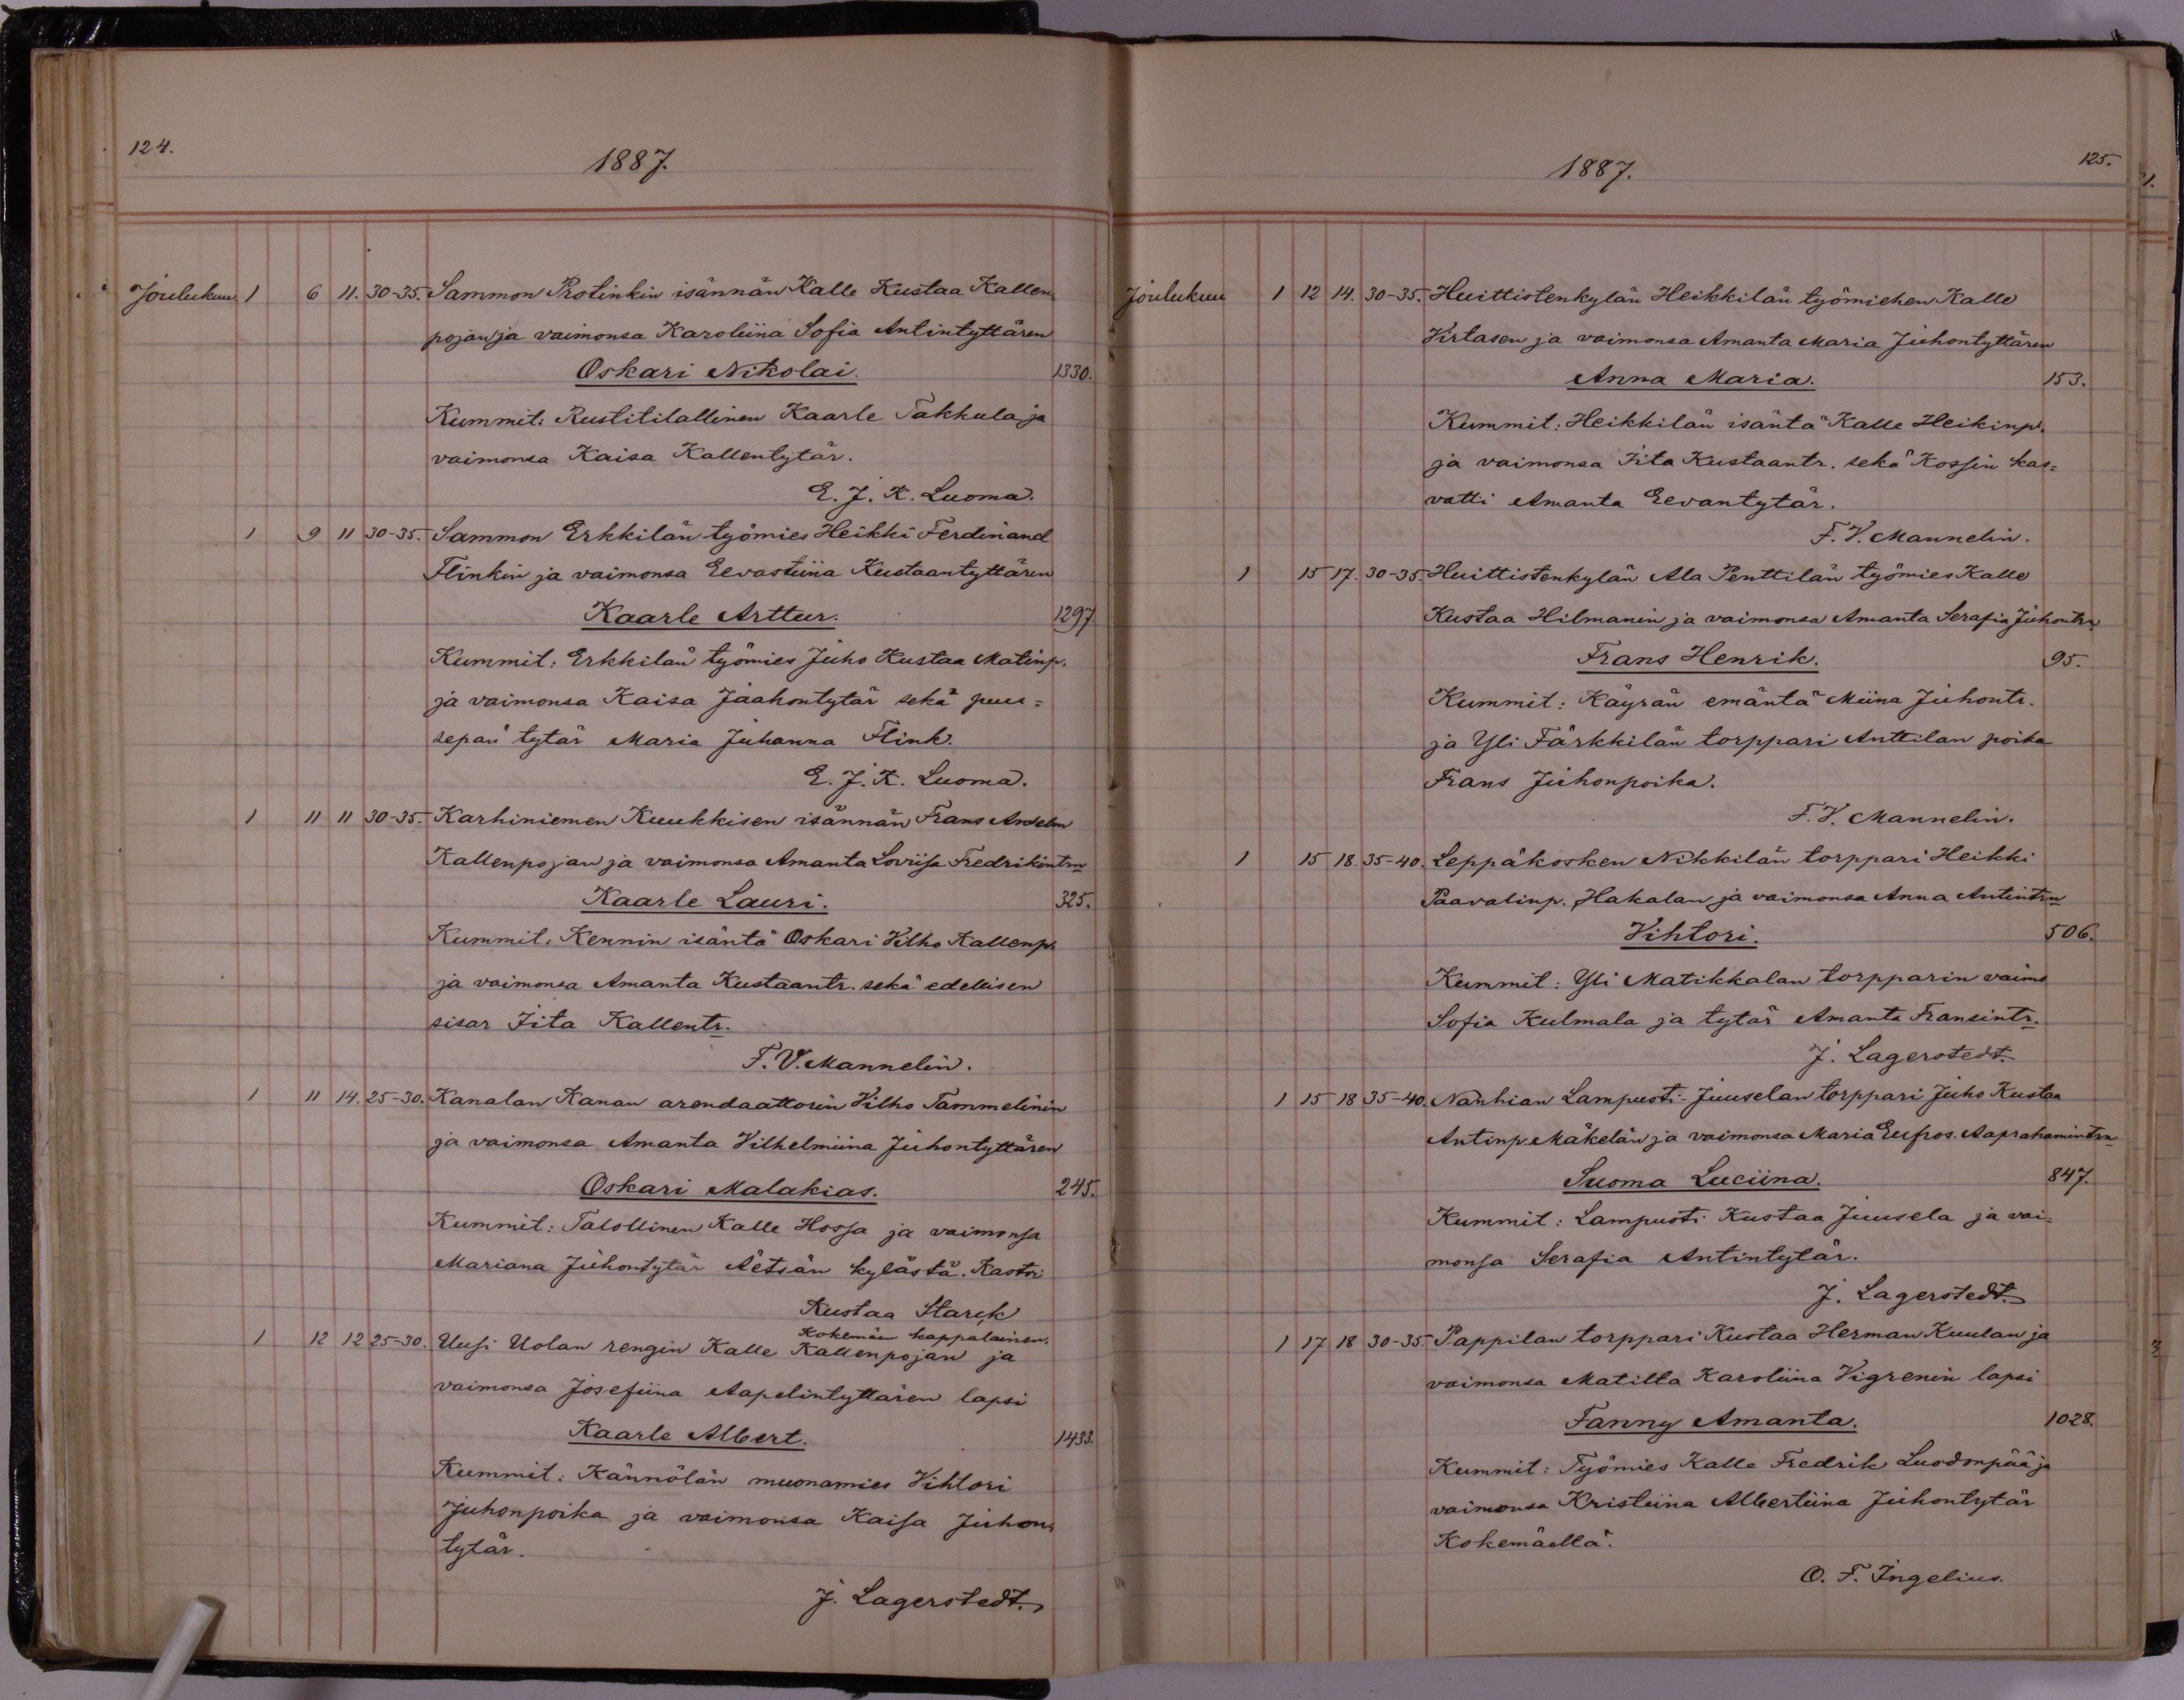 124.
1887.
Joulukuu. 1 6 11. 30-35. Sammon Protinkin isännän Kalle Kustaa Kallen-
pojan ja vaimonsa Karoliina Sofia Antintyttären
Oskari Nikolai. 1330.
Kummit: Rustitilallinen Kaarle Takkula ja
vaimonsa Kaisa Kallentytär.
E. J. K. Luoma.
1 9 11 30-35. Sammon Erkkilän työmies Heikki Ferdinand
Flinkin ja vaimonsa Eevastiina Kustaantyttären
Kaarle Arttur. 1297
Kummit: Erkkilän työmies Juho Kustaa Matinp.
ja vaimonsa Kaisa Jaahontytär sekä puu=
sepän tytär Maria Juhanna Flink.
E. J. K. Luoma.
1 11 11 30-35. Karhiniemen Kuukkisen isännän Frans Anselm
Kallenpojan ja vaimonsa Amanta Loviisa Fredrikintrn
Kaarle Lauri. 325.
Kummit: Kennin isäntä Oskari Vilho Kallenp.
ja vaimonsa Amanta Kustaantr. sekä edellisen
sisar Iita Kallentr.
F. V. Mannelin.
1 11 14. 25-30. Kanalan Kanan arendaattorin Vilho Tammelinin
ja vaimonsa Amanta Vilhelmiina Juhontyttären
Oskari Malakias. 245.
Kummit: Talollinen Kalle Hossa ja vaimonsa
Mariana Juhontytär Äetsän kylästä. Kastoi
Kustaa Starck
Kokemäen kappalainen.
1 12 12 25-30. Uusi Uolan rengin Kalle Kallenpojan ja
vaimonsa Josefiina Aapelintyttären lapsi
Kaarle Albert. 1433.
Kummit: Kännölän muonamies Vihtori
Juhonpoika ja vaimonsa Kaisa Juhon-
tytär.
J. Lagerstedt.
1887.
125.
Joulukuu 1 12 14. 30-35. Huittistenkylän Heikkilän työmiehen Kalle
Virtasen ja vaimonsa Amanta Maria Juhontyttären
Anna Maria. 153.
Kummit: Heikkilän isäntä Kalle Heikinp.
ja vaimonsa Iita Kustaantr. sekä Kossin kas=
vatti Amanta Eevantytär.
F. V. Mannelin.
1 15 17. 30-35. Huittistenkylän Ala Penttilän työmies Kalle
Kustaa Hilmanin ja vaimonsa Amanta Serafia Juhontrn
Frans Henrik. 95.
Kummit: Käyrän emäntä Miina Juhontr.
ja Yli Färkkilän torppari Anttilan poika
Frans Juhonpoika.
F. V. Mannelin.
1 15 18. 35-40. Leppäkosken Nikkilän torppari Heikki
Paavalinp. Hakalan ja vaimonsa Anna Antintrn
Vihtori. 506.
Kummit: Yli Matikkalan torpparin vaimo
Sofia Kulmala ja tytär Amanta Fransintr.
J. Lagerstedt.
1 15 18 35-40. Nanhian Lampuoti-Juuselan torppari Juho Kustaa
Antinp. Mäkelän ja vaimonsa Maria Eufros. Aaprahamintrn
Suoma Luciina. 847.
Kummit: Lampuoti Kustaa Juusela ja vai=
monsa Serafia Antintytär.
J. Lagerstedt.
1 17 18 30-35. Pappilan torppari Kustaa Herman Kuulan ja
vaimonsa Matilta Karoliina Vigrenin lapsi
Fanny Amanta. 1028.
Kummit: Työmies Kalle Fredrik Luodonpää ja
vaimonsa Kristiina Albertiina Juhontytär
Kokemäellä.
O. F. Ingelius.